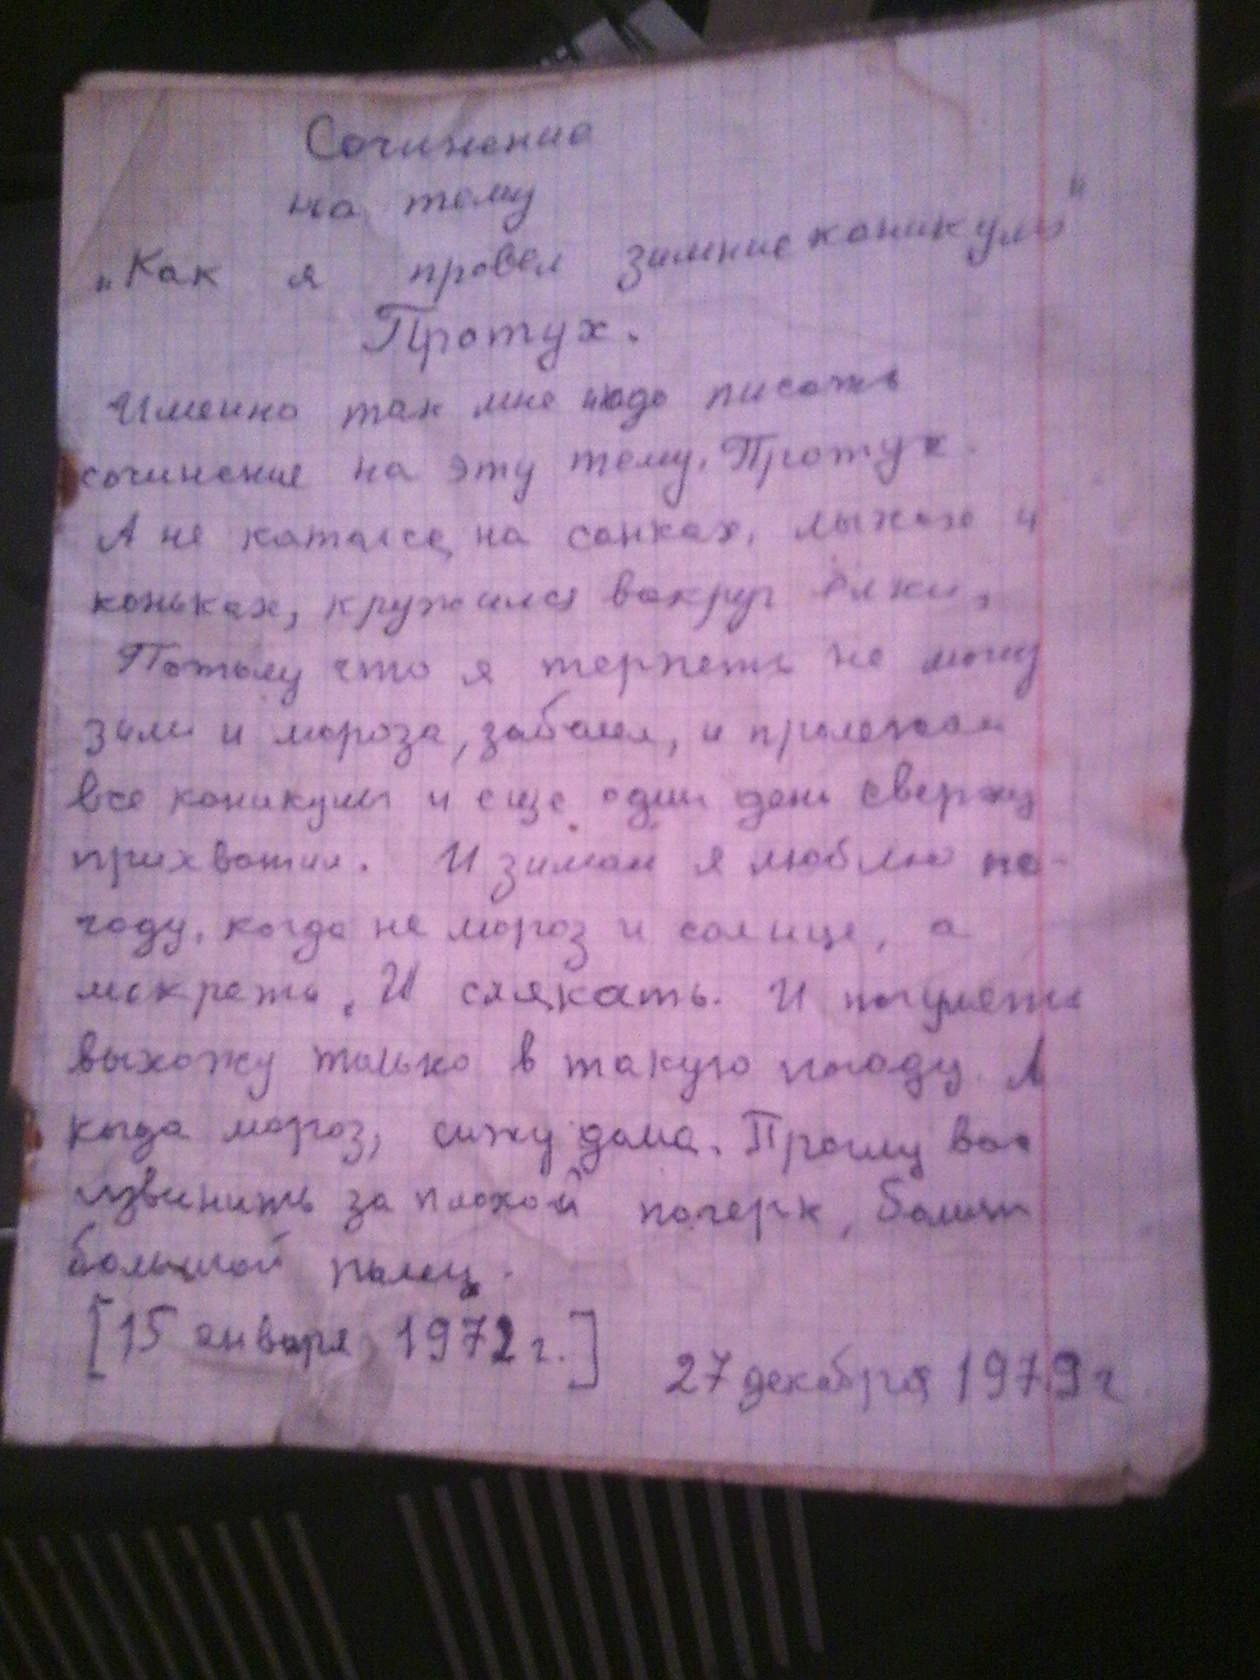 Сочинение
на тему
„Как я провел зимние каникулы"
Протух.
Именно так мне надо писать
сочинение на эту тему. Протух.
А не катался на санках, лыжах и
коньках, кружился вокруг ёлки,
Потому что я терпеть не могу
зимы и мороза, заболел, и пролежал
все каникулы и еще один день сверху
прихватил. И зимой я люблю по-
году, когда не мороз и солнце, а
мокреть. И слякать. И погулять
выхожу только в такую погоду. А
когда мороз, сижу дома. Прошу вас
извинить за плохой почерк, болит
большой палец.
[15 января 1972 г.]
27 декабря 1979 г